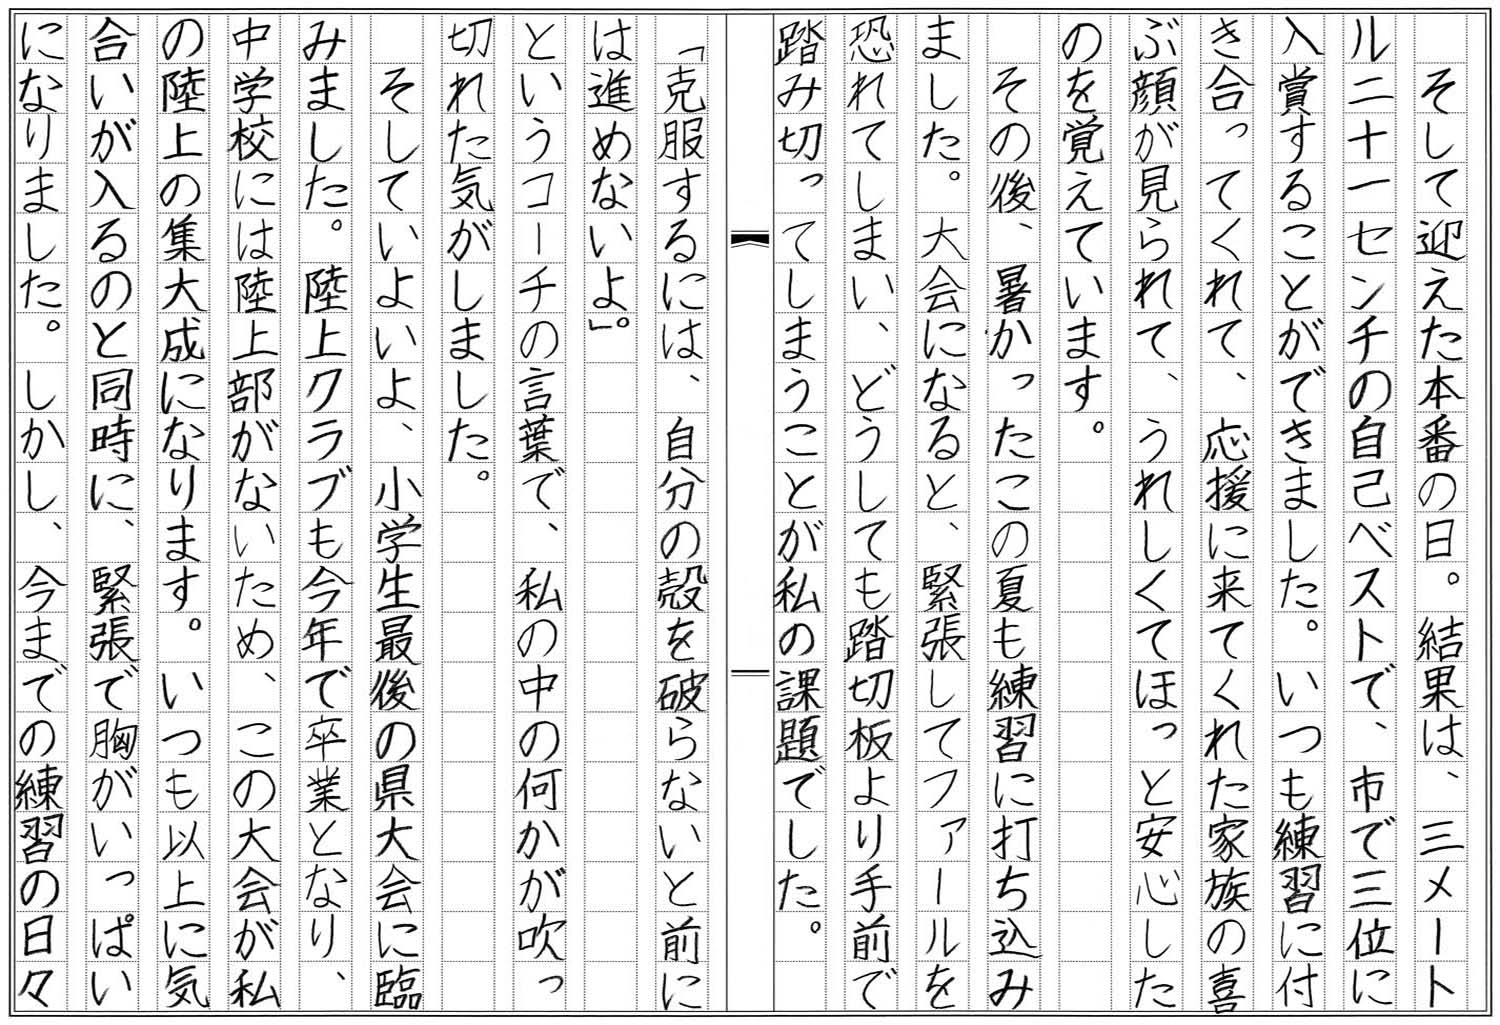 そして迎えた本番の日。結果は、三メート
ル二十一センチの自己ベストで、市で三位に
入賞することができました。いつも練習に付
き合ってくれて、応援に来てくれた家族の喜
ぶ顔が見られて、うれしくてほっと安心した
のを覚えています。
　その後、暑かったこの夏も練習に打ち込み
ました。大会になると、緊張してファールを
恐れてしまい、どうしても踏切板より手前で
踏み切ってしまうことが私の課題でした。
「克服するには、自分の殻を破らないと前に
は進めないよ」。
というコーチの言葉で、私の中の何かが吹っ
切れた気がしました。
　そしていよいよ、小学生最後の県大会に臨
みました。陸上クラブも今年で卒業となり、
中学校には陸上部がないため、この大会が私
の陸上の集大成になります。いつも以上に気
合いが入るのと同時に、緊張で胸がいっぱい
になりました。しかし、今までの練習の日々